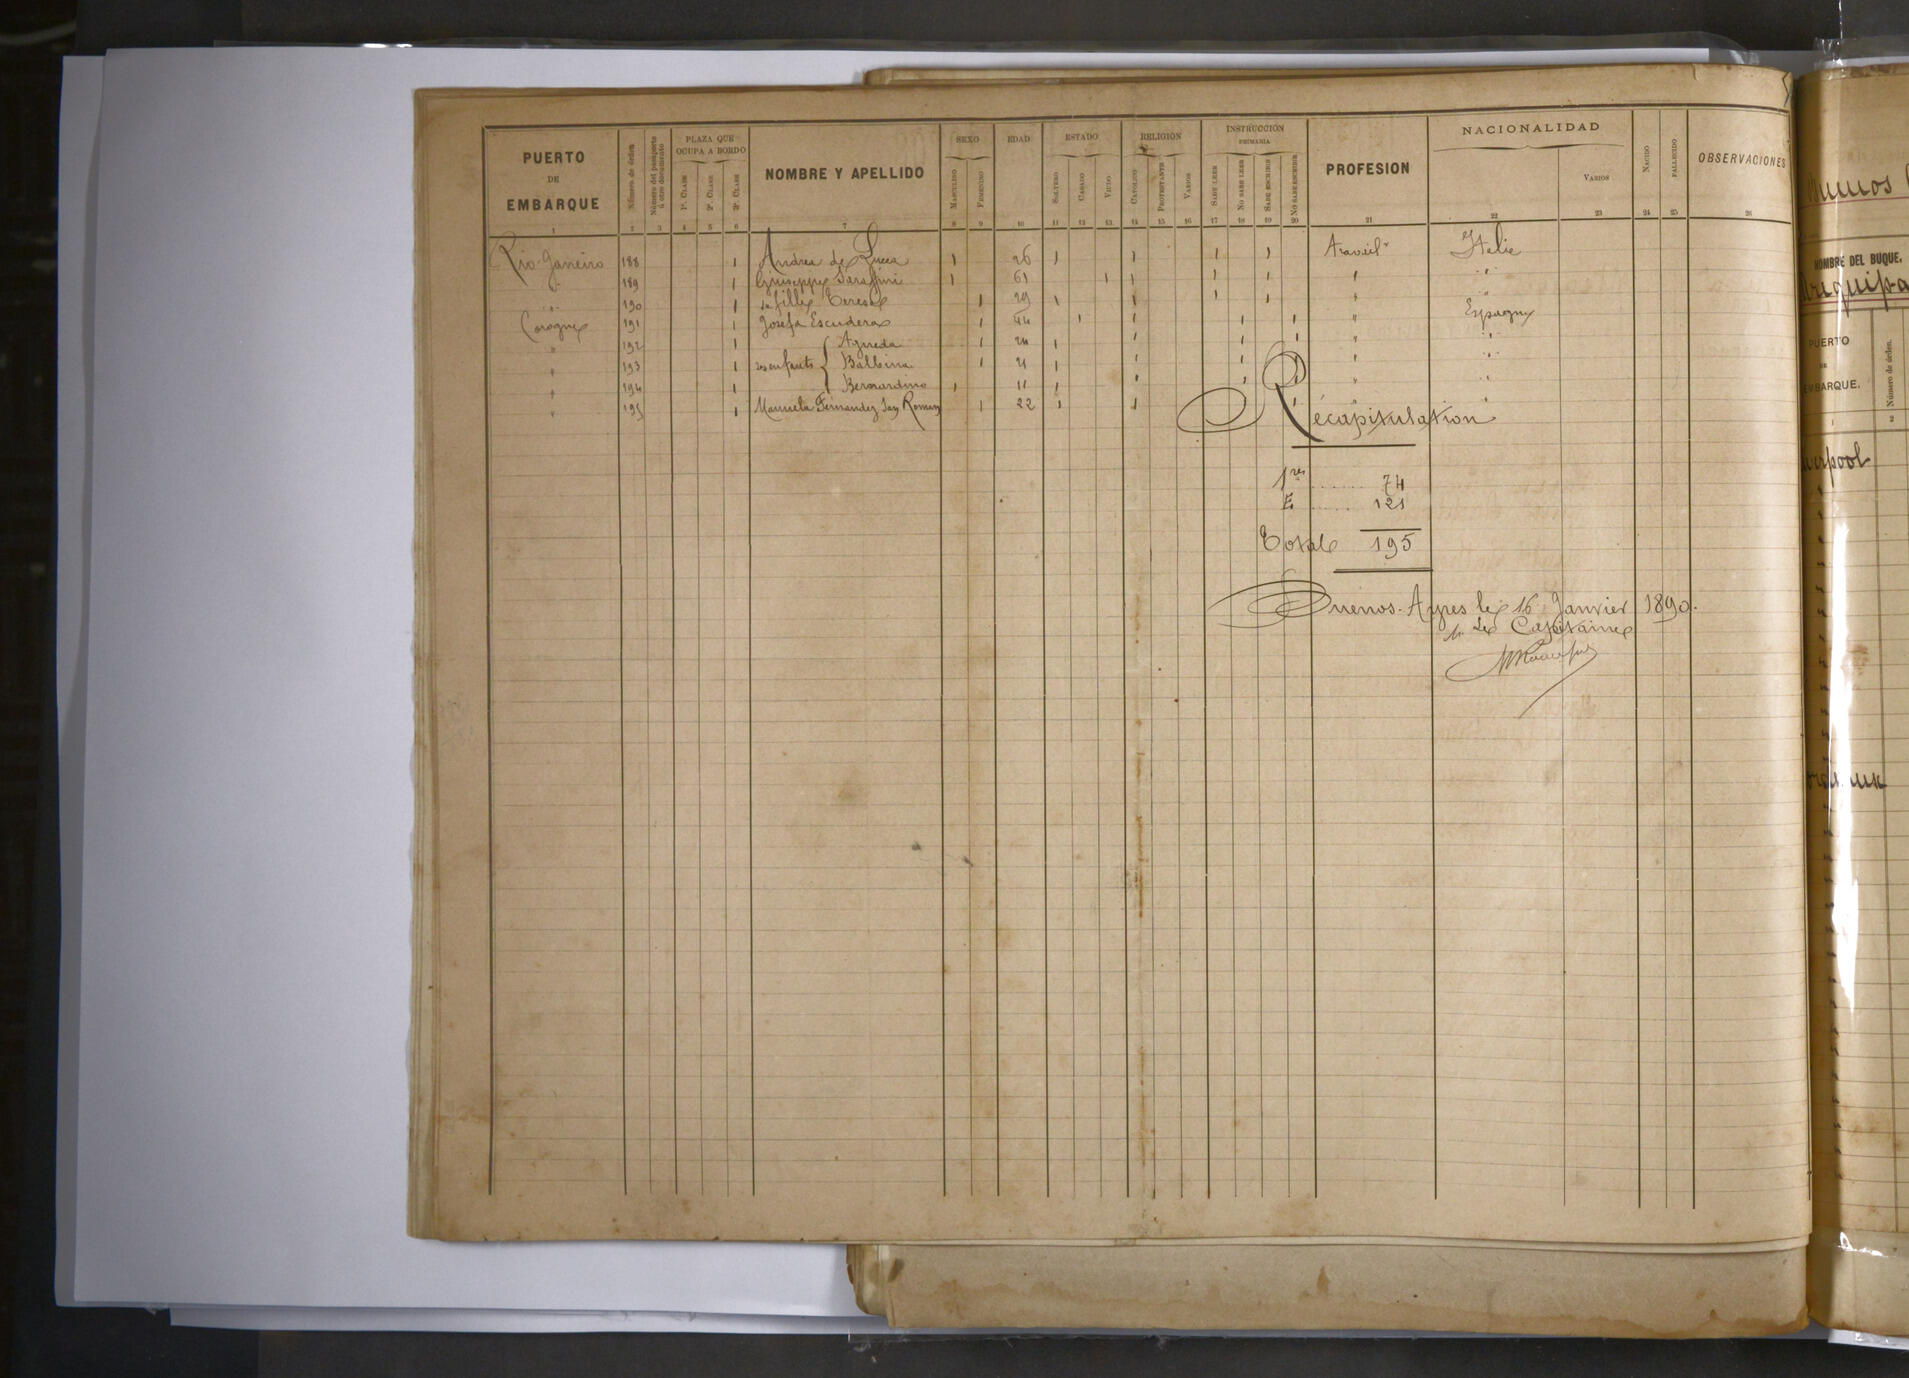 PUERTO DE EMBARQUE
Número de órden
Número del pasaporte ú otro documento
PLAZA QUE OCUPA A BORDO
1ª. CLASE
2ª. CLASE
3ª. CLASE
NOMBRE Y APELLIDO
SEXO
MASCULINO
FEMENINO
EDAD
ESTADO
SOLTERO
CASADO
VIUDO
RELIGION
CATOLICO
PROTESTANTE
VARIOS
INSTRUCCION PRIMARIA
SABE LEER
NO SABE LEER
SABE ESCRIBIR
NO SABE ESCRIBIR
PROFESION
NACIONALIDAD
VARIOS
NACIDO
FALLECIDO
OBSERVACIONES
1 2 3 4 5 6 7 8 9 10 11 12 13 14 15 16 17 18 19 20 21 22 23 24 25 26
Rio-Janeiro 188 1 Andrea de Lucca 1 26 1 1 1 1 Travail Italie
" 189 1 Giuseppe Saraffini 1 61 1 1 1 1 " "
" 190 1 sa fille Teresa 1 29 1 1 1 1 " "
Corogne 191 1 Josefa Escudero 1 44 1 1 1 1 " Espagne
" 192 1 Agueda 1 1 1 1 1 " "
" 193 1 ses enfants Balbina 1 21 1 1 1 1 " "
" 194 1 Bernardino 1 11 1 1 1 1 " "
" 195 1 Manuela Fernandez San Roman 1 22 1 1 1 "
Récapitulation
1res ...... 74
E. ...... 121
Total 195
Buenos-Ayres le 16 Janvier 1890.
Le Capitaine
NOMBRE DEL BUQUE.
PUERTO DE EMBARQUE.
Número de órden.